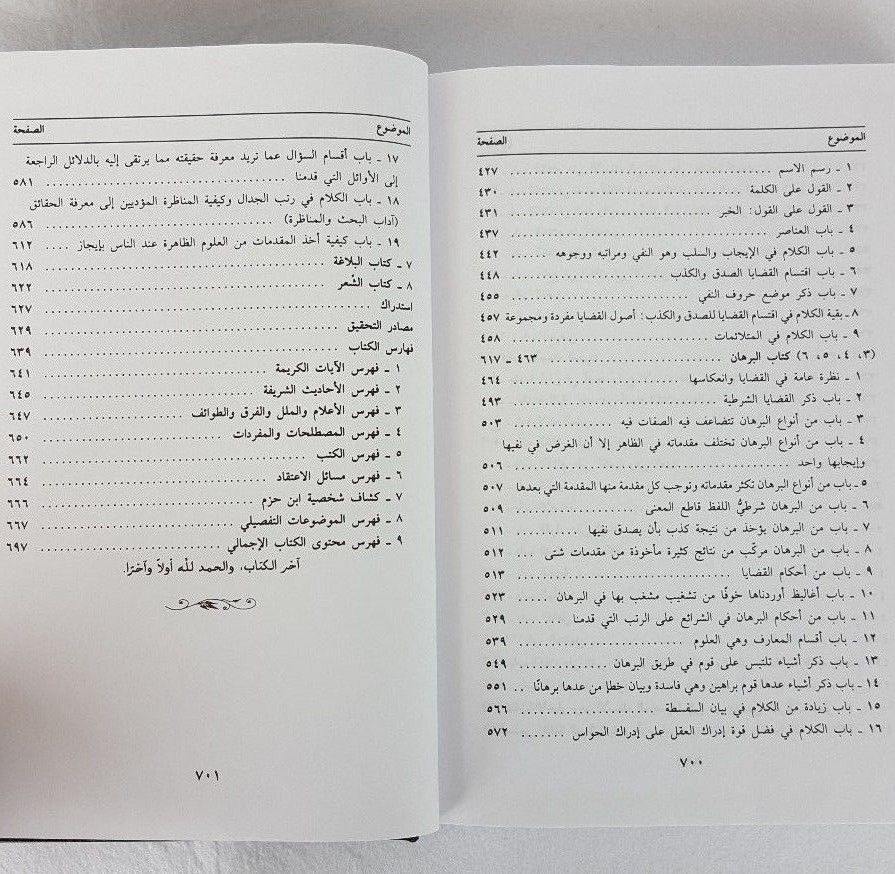 الموضوع الصفحة
١ ـ رسم الاسم ........ ٤٢٧
٢ ـ القول على الكلمة ........ ٤٣٠
٣ ـ القول على القول: الخبر ........ ٤٣١
٤ ـ باب العناصر ........ ٤٣٧
٥ ـ باب الكلام في الإيجاب والسلب وهو النفي ومراتبه ووجوهه ........ ٤٤٢
٦ ـ باب اقتسام القضايا الصدق والكذب ........ ٤٤٨
٧ ـ باب ذكر موضع حروف النفي ........ ٤٥٥
٨ ـ بقية الكلام في اقتسام القضايا للصدق والكذب: أصول القضايا مفردة ومجموعة ٤٥٧
٩ ـ باب الكلام في المتلائمات ........ ٤٥٨
(٣، ٤، ٥، ٦) كتاب البرهان ........ ٤٦٣ ـ ٦١٧
١ ـ نظرة عامة في القضايا وانعكاسها ........ ٤٦٤
٢ ـ باب ذكر القضايا الشرطية ........ ٤٩٣
٣ ـ باب من أنواع البرهان تتضاعف فيه الصفات فيه ........ ٥٠٣
٤ ـ باب من أنواع البرهان تختلف مقدماته في الظاهر إلا أن الغرض في نفيها
وإيجابها واحد ........ ٥٠٦
٥ ـ باب من أنواع البرهان تكثر مقدماته وتوجب كل مقدمة منها المقدمة التي بعدها ٥٠٧
٦ ـ باب من البرهان شرطيُّ اللفظ قاطع المعنى ........ ٥٠٩
٧ ـ باب من البرهان يؤخذ من نتيجة كذب بأن يصدق نفيها ........ ٥١١
٨ ـ باب من البرهان مركّب من نتائج كثيرة مأخوذة من مقدمات شتى ... ٥١٢
٩ ـ باب من أحكام القضايا ........ ٥١٣
١٠ ـ باب أغاليظ أوردناها خوفًا من تشغيب مشغب بها في البرهان ..... ٥٢٣
١١ ـ باب من أحكام البرهان في الشرائع على الرتب التي قدمنا ........ ٥٢٩
١٢ ـ باب أقسام المعارف وهي العلوم ........ ٥٣٩
١٣ ـ باب ذكر أشياء تلتبس على قوم في طريق البرهان ........ ٥٤٩
١٤ ـ باب ذكر أشياء عدها قوم براهين وهي فاسدة وبيان خطإ من عدها برهانًا .. ٥٥١
١٥ ـ باب زيادة من الكلام في بيان السفسطة ........ ٥٦٦
١٦ ـ باب الكلام في فضل قوة إدراك العقل على إدراك الحواس ....... ٥٧٢
٧٠٠
الموضوع الصفحة
١٧ ـ باب أقسام السؤال عما تريد معرفة حقيقته مما يرتقى إليه بالدلائل الراجعة
إلى الأوائل التي قدمنا ........ ٥٨١
١٨ ـ باب الكلام في رتب الجدال وكيفية المناظرة المؤديين إلى معرفة الحقائق
(آداب البحث والمناظرة) ........ ٥٨٦
١٩ ـ باب كيفية أخذ المقدمات من العلوم الظاهرة عند الناس بإيجاز .... ٦١٢
٧ ـ كتاب البلاغة ........ ٦١٨
٨ ـ كتاب الشّعر ........ ٦٢٢
استدراك ........ ٦٢٧
مصادر التحقيق ........ ٦٢٩
فهارس الكتاب ........ ٦٣٩
١ ـ فهرس الآيات الكريمة ........ ٦٤١
٢ ـ فهرس الأحاديث الشريفة ........ ٦٤٥
٣ ـ فهرس الأعلام والملل والفرق والطوائف ........ ٦٤٧
٤ ـ فهرس المصطلحات والمفردات ........ ٦٥٠
٥ ـ فهرس الكتب ........ ٦٦٢
٦ ـ فهرس مسائل الاعتقاد ........ ٦٦٤
٧ ـ كشاف شخصية ابن حزم ........ ٦٦٦
٨ ـ فهرس الموضوعات التفصيلي ........ ٦٦٧
٩ ـ فهرس محتوى الكتاب الإجمالي ........ ٦٩٧
آخر الكتاب، والحمد للّه أولاً وآخرًا.
٧٠١